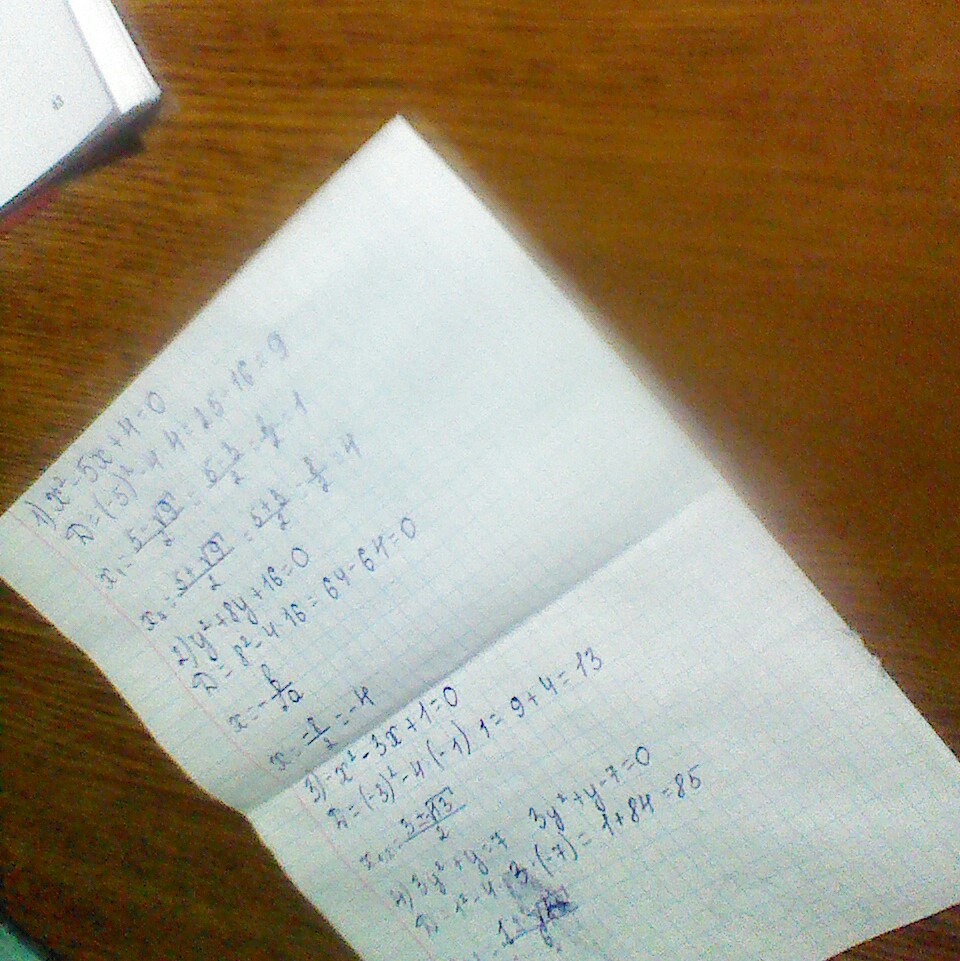 1) x²-5x+4=0
D=(-5)²-4·4=25-16=9
x₁=(5-√9)/2=(5-3)/2=2/2=1
x₂=(5+√9)/2=(5+3)/2=8/2=4
2) y²+8y+16=0
D=8²-4·16=64-64=0
x=-b/2a
x=-8/2=-4
3) -x²-3x+1=0
D=(-3)²-4·(-1)·1=9+4=13
4) 3y²+y=7 3y²+y-7=0
D=1²-4·3·(-7)=1+84=85